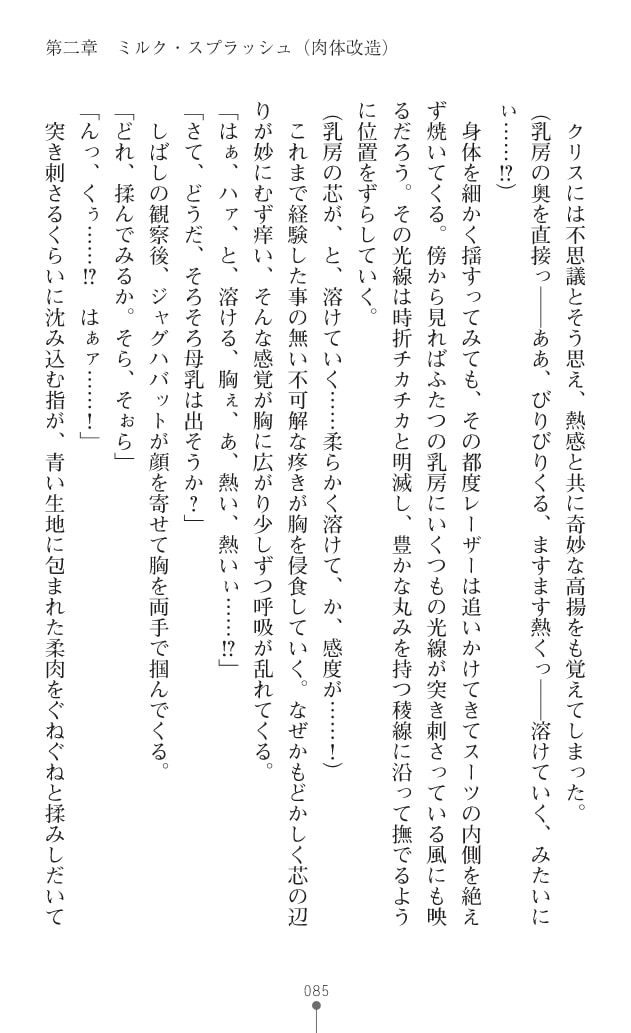 第二章　ミルク・スプラッシュ（肉体改造）
　クリスには不思議とそう思え、熱感と共に奇妙な高揚をも覚えてしまった。
（乳房の奥を直接っ――ああ、びりびりくる、ますます熱くっ――溶けていく、みたいに
ぃ……⁉）
　身体を細かく揺すってみても、その都度レーザーは追いかけてきてスーツの内側を絶え
ず焼いてくる。傍から見ればふたつの乳房にいくつもの光線が突き刺さっている風にも映
るだろう。その光線は時折チカチカと明滅し、豊かな丸みを持つ稜線に沿って撫でるよう
に位置をずらしていく。
（乳房の芯が、と、溶けていく……柔らかく溶けて、か、感度が……！）
　これまで経験した事の無い不可解な疼きが胸を侵食していく。なぜかもどかしく芯の辺
りが妙にむず痒い、そんな感覚が胸に広がり少しずつ呼吸が乱れてくる。
「はぁ、ハァ、と、溶ける、胸ぇ、あ、熱い、熱いぃ……⁉」
「さて、どうだ、そろそろ母乳は出そうか？」
　しばしの観察後、ジャグハバットが顔を寄せて胸を両手で掴んでくる。
「どれ、揉んでみるか。そら、そぉら」
「んっ、くぅ……⁉　はぁァ……！」
　突き刺さるくらいに沈み込む指が、青い生地に包まれた柔肉をぐねぐねと揉みしだいて
085